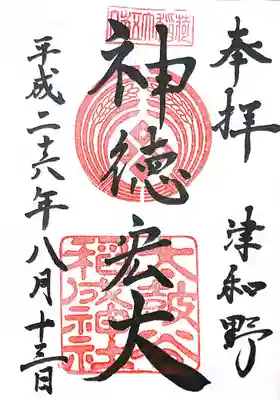 奉拝
津和野
神徳宏大
太鼓谷
稲成神社
平成二十六年八月十三日